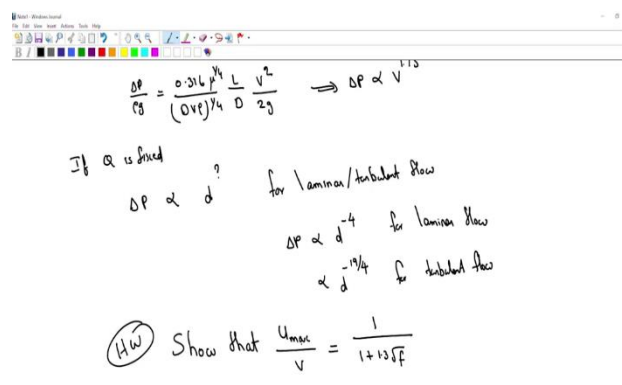 Note1 - Windows Journal
File Edit View Insert Actions Tools Help
ΔP/ρg = 0.316 μ^1/4 / (DVρ)^1/4 L/D V²/2g ⟹ ΔP ∝ V
If Q is fixed
ΔP ∝ d^? for laminar/turbulent flow
ΔP ∝ d^-4 for laminar flow
∝ d^-19/4 for turbulent flow
HW Show that Umax/V = 1/1+1.3√f